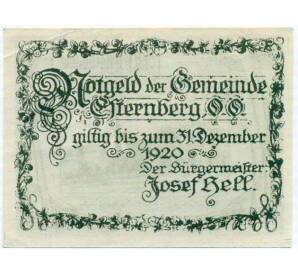 Notgeld der Gemeinde
Esternberg O.Ö.
giltig bis zum 31. Dezember
1920
Der Bürgermeister:
Josef Hell.